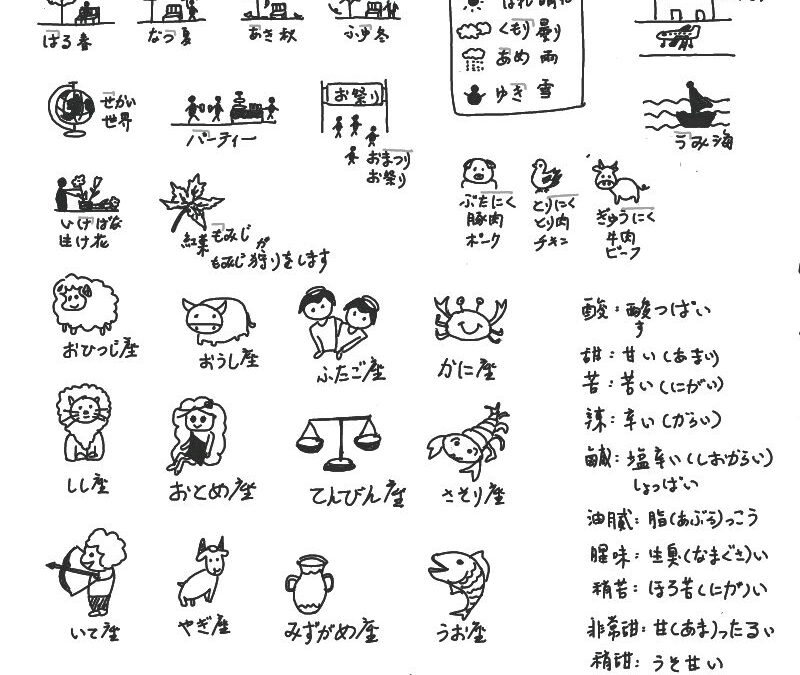 はる 春
なつ 夏
あき 秋
ふゆ 冬
くもり 曇り
あめ 雨
ゆき 雪
せかい
世界
パーティー
お祭り
おまつり
お祭り
うみ 海
いけばな
生け花
紅葉 もみじ
もみじ狩りをします
が
ぶたにく
豚肉
ポーク
とりにく
とり肉
チキン
ぎゅうにく
牛肉
ビーフ
おひつじ座
おうし座
ふたご座
かに座
しし座
おとめ座
てんびん座
さそり座
いて座
やぎ座
みずがめ座
うお座
酸：酸っぱい
す
甜：甘い(あまい)
苦：苦い(にがい)
辣：辛い(からい)
鹹：塩辛い(しおからい)
しょっぱい
油膩：脂(あぶら)っこう
腥味：生臭(なまぐさ)い
稍苦：ほろ苦(にが)い
非常甜：甘(あま)ったるい
稍甜：うそ甘い